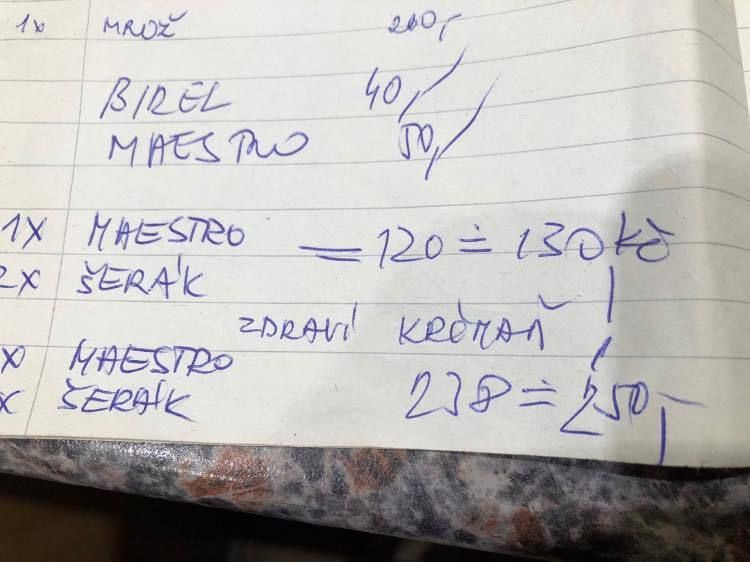 1x MROŽ 200,-
BIREL 40,-
MAESTRO 50,-
1X MAESTRO = 120 ≐ 130 Kč
2X ŠERÁK
ZDRAVÍ KRČMAŇ
X MAESTRO
X ŠERÁK 238 ≐ 250,-